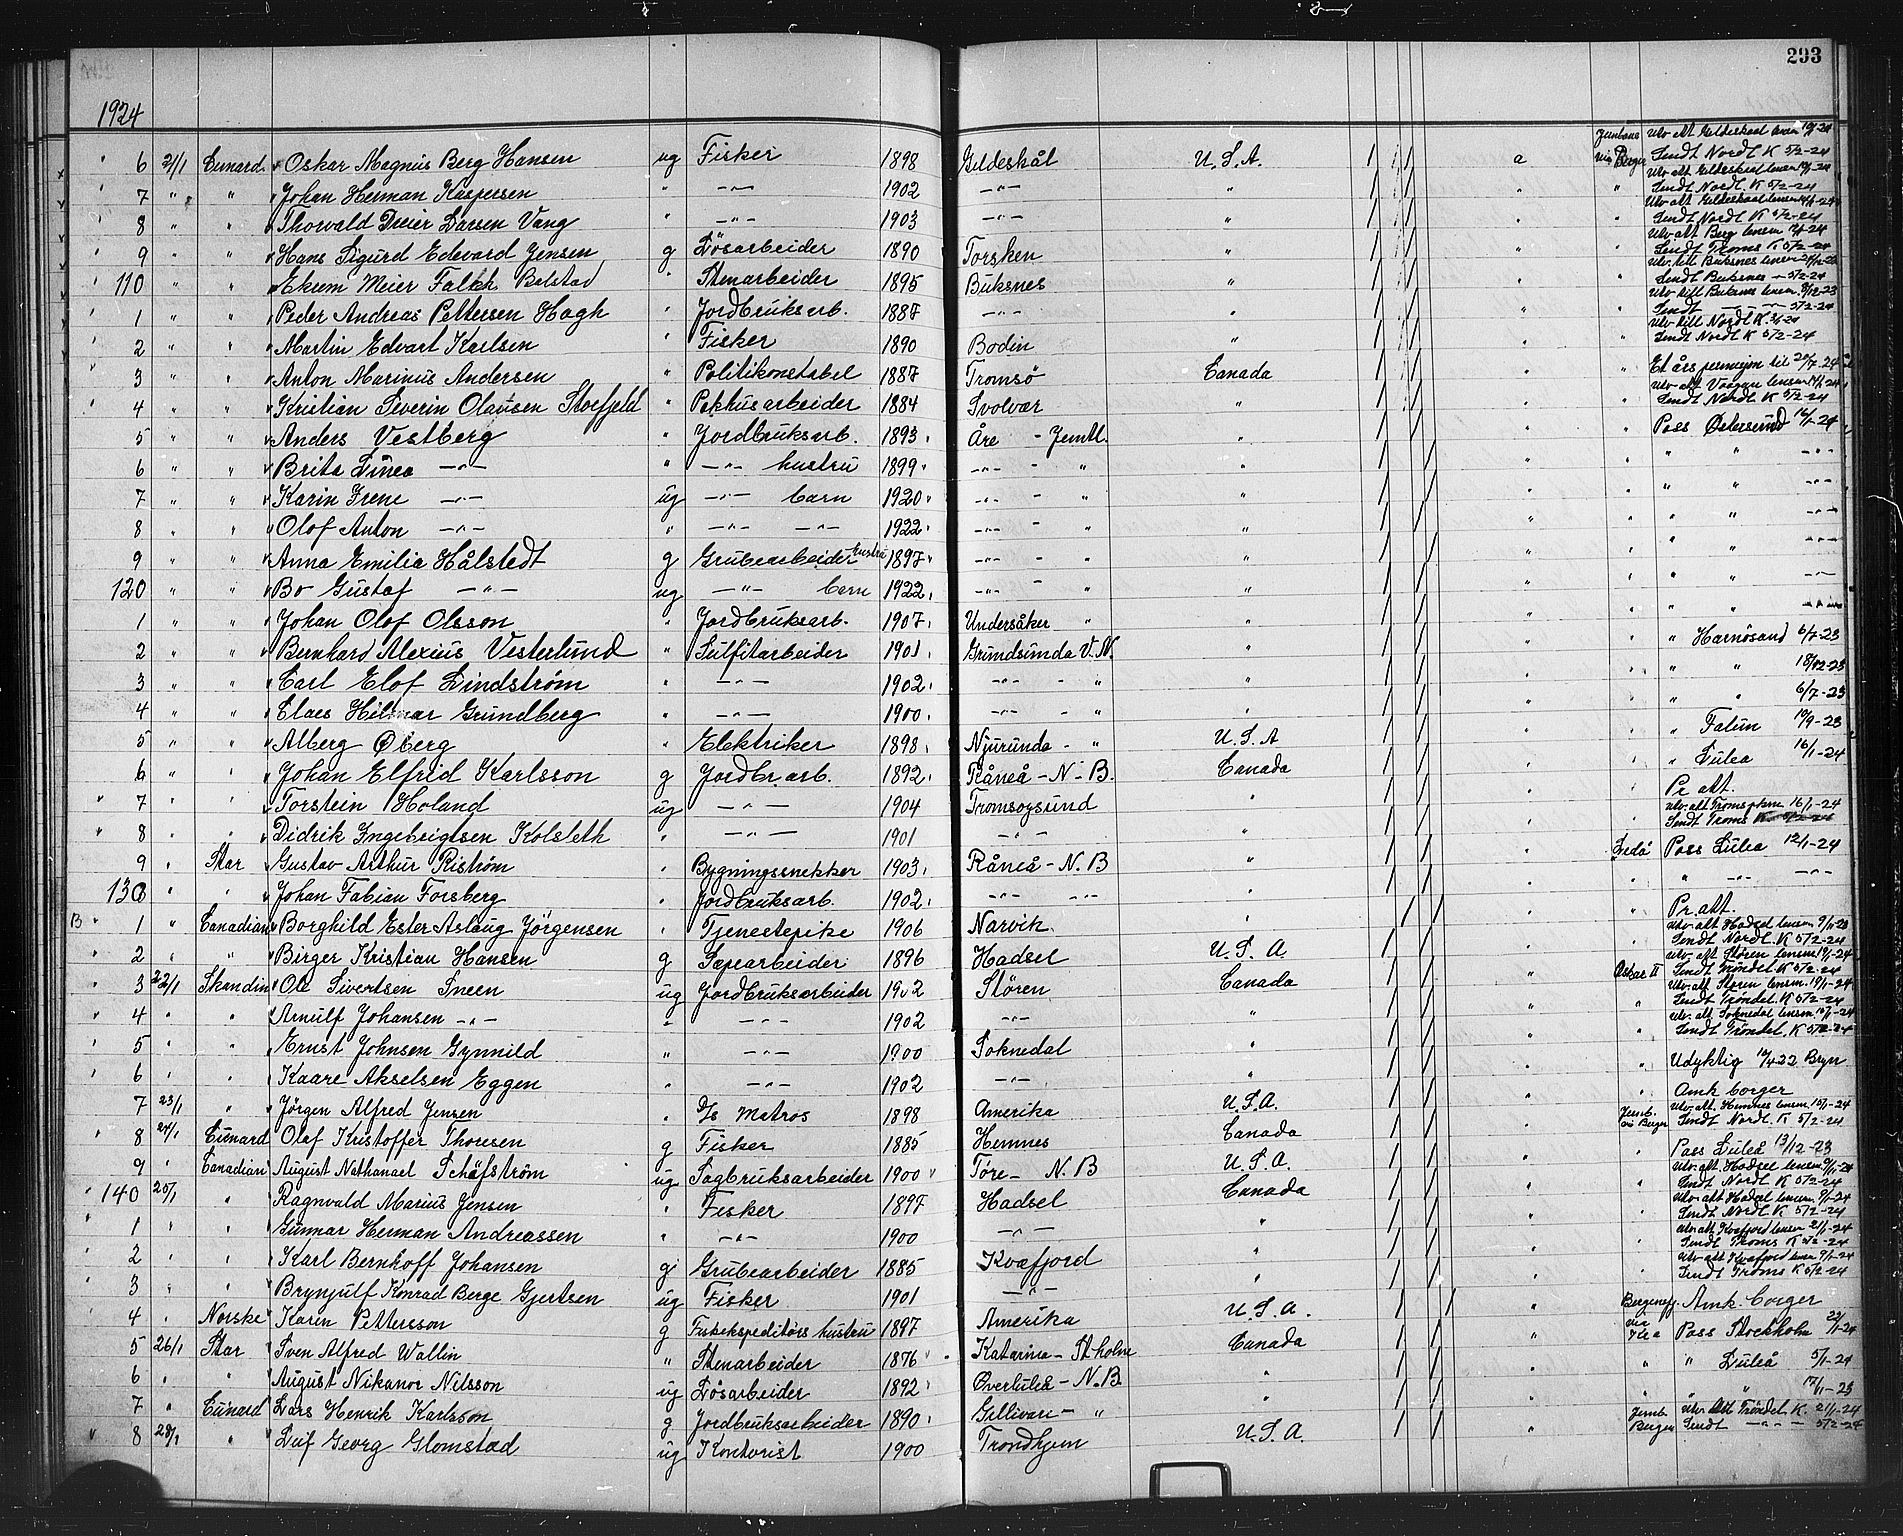 293
1924
6 21/1 Cunard Oskar Magnus Berg Hansen ug Fisker 1898 Gildeskål U.S.A. 1 1 a Jernbane via Bergen Utv. att Gildeskaal lensm 10/1-24 Sendt Nordl K 5/2-24
7 " " Johan Herman Kaspersen " -"- 1902 -"- " 1 1 " " Utv att Gildeskaal lensm 10/1-24 Sendt Nordl. K 5/2-24
8 " " Thorvald Dreier Larsen Vang " -"- 1903 -"- " 1 1 " " Utv att Gildeskaal lensm Sendt Nordl K 5/2-24
9 " " Hans Sigurd Edevard Jensen g Løsarbeider 1890 Torsken " 1 1 " " Utv att Berg lensm Sendt Troms K 5/2-24
110 " " Meier Falkh Bolstad " Stenarbeider 1895 Buksnes " 1 1 Utv. till Buksnes lensm Sendt Buksnes - 5/2-24
1 " " Peder Andreas Pettersen Hagh " Jordbruksarb. 1887 -"- " 1 1 " " Utv till Buksnes lensm. Sendt -"- 5/2-24
2 " " Martin Edvart Karlsen " Fisker 1890 Bodin " 1 1 " Utv till Nordl K. Sendt Nordl K 5/2-24
3 " " Anton Marinus Andersen " Politikonstabel 1887 Tromsø Canada 1 1 " " Et års permisjon til
4 " " Kristian Severin Olausen Storfjeld " Pakhusarbeider 1884 Svolvær " 1 1 " Utv att Vaagan lensm Sendt Nordl. K 5/2-24
5 " " Anders Vestberg " Jordbruksarb. 1893 Åre - Jemtl. " 1 1 " " Pass Østersund 16/1-24
6 " " Brita Linea -"- " -"- hustru 1899 -"- - " " 1 1 " " " " -"-
7 " " Karin Irene -"- ug -"- barn 1920 -"- - " " 1 1 " " " " -"-
8 " " Olof Anton -"- " -"- -"- 1922 -"- - " " 1 1 " " " " -"-
9 " " Anna Emilia Hålstedt g Grubearbeider hustru 1897 -"- - " " 1 1 " " " " -"-
120 " " Bo Gustaf -"- ug -"- barn 1922 -"- - " " 1 1 " " " " -"-
1 " " Johan Olof Olsson " Jordbruksarb. 1907 Undersåker " " 1 1 " " " " -"-
2 " " Bernhard Alexius Vesterlund " Sulfitarbeider 1901 Grundsunda V.N. " 1 1 " " " Harnösand 6/7-23
3 " " Carl Elof Lindström " -"- 1902 -"- - " " 1 1 " " " " 18/12-23
4 " " Claes Hilmar Grundberg " -"- 1900 -"- - " " 1 1 " " " " 6/7-23
5 " " Alberg Øberg " Elektriker 1898 Njurunda - " U.S.A 1 1 " " " Falun 19/9-23
6 " " Johan Elfrid Karlsson g Jordbr.arb. 1892 Råneå - N-B. Canada 1 1 " " " Lulea 16/1-24
7 " " Torstein Holand ug -"- 1904 Tromsøysund " 1 1 " " Pr. att.
8 " " Didrik Ingebrigtsen Kolsleth " -"- 1901 -"- " 1 1 " " Utv. att Troms 16/1-24 Sendt Troms K 5/2-24
9 " Star Gustav Arthur Riström " Bygningssnekker 1903 Råneå - N.B " 1 1 " Pass Lulea 12/1-24
130 " " Johan Fabian Forsberg " Jordbruksarb. 1902 -"- -"- " 1 1 " " " -"- -"-
B 1 " Canadian Borghild Ester Aslaug Jörgensen " Tjenestepike 1906 Narvik. " 1 1 " " Pr. att.
2 " " Birger Kristian Hansen g Sæpearbeider 1896 Hadsel U.S.A. 1 1 " " Utv. att Hadsel lensm Sendt Nordl. K 5/2-24
3 22/1 Skandin Ole Sivertsen Sneen ug Jordbruksarbeider 1902 Stören Canada 1 1 " Oskar II Utv. att Stören lensm Sendt Trøndel K 5/2-24
4 " " Arnulf Johansen -"- " -"- 1902 -"- " 1 1 " " Utv. att Stören lensm. 19/1-24 Sendt Trøndel. K 5/2-24
5 " " Ernst Johnsen Gynnild " -"- 1900 Soknedal " 1 1 " " Utv. att Soknedal lensm Sendt Trøndel. K 5/2-24
6 " " Kaare Akselsen Eggen " -"- 1902 -"- " 1 1 " " Udyktig 22 Bryn
7 23/1 " Jörgen Alfred Jensen " D/s Matros 1898 Amerika U.S.A. 1 1 " " Amk borger
8 24/1 Cunard Olaf Kristoffer Thoresen g Fisker 1885 Hemnes Canada 1 1 " Jernb. via Bergen Utv. att. Hemnes lensm 15/1-24 Sendt Nordl. K 5/2-24
9 " Canadian August Nathanael Schäfström ug Sagbruksarbeider 1900 Töre - N.B U.S.A. 1 1 " " Pass Luleå 13/12-23
140 25/1 " Ragnvald Marius Jensen " Fisker 1897 Hadsel Canada 1 1 " " Utv. att Hadsel lensm Sendt Nordl K 5/2-24
1 " " Gunnar Herman Andreassen " -"- 1900 -"- " 1 1 " " Utv. att Hadsel lensm Sendt Nordl K. 5/2-24
2 " " Karl Bernhoff Johansen g Grubearbeider 1885 Kvæfjord " 1 1 " " Utv. att Kvæfjord lensm 21/1-24 Sendt Troms K 5/2-24
3 " " Brynjulf Konrad Berge Gjertsen ug Fisker 1901 -"- " 1 1 " " Utv. att Kvæfjord lensm Sendt Troms K 5/2-24
4 " Norske Karin Pettersson g Fiskekspeditørs hustru 1897 Amerika U.S.A. 1 1 " Bergensfj. Amk. borger
5 26/1 Star Sven Alfred Wallin " Stenarbeider 1876 Katarina - St.holm Canada 1 1 " via Pass Stockholm
6 " " August Nikanor Nilsson ug Løsarbeider 1892 Överluleå - N.B. " 1 1 " " " Luleå 5/1-24
7 " Cunard Lars Henrik Karlsson g Jordbruksarbeider 1890 Gellivare - " " 1 1 " " " " 17/11-23
8 28/1 " Leif Georg Glomstad ug Kontorist 1900 Trondhjem U.S.A. 1 1 " Jernb Bergen Utv. att Trøndel K. 21/1-24 Sendt -"- 5/2-24